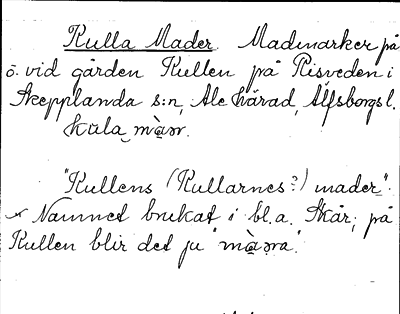 Kulla Mader. Madmarker på
ö. vid gården Kullen på Risveden i
Skepplanda s:n, Ale härad, Älfsborgs l.
kula màər.
"Kullens (Kullarnes?) mader".
Namnet brukat i bl.a. Skår; på
Kullen blir det ju "màəra".